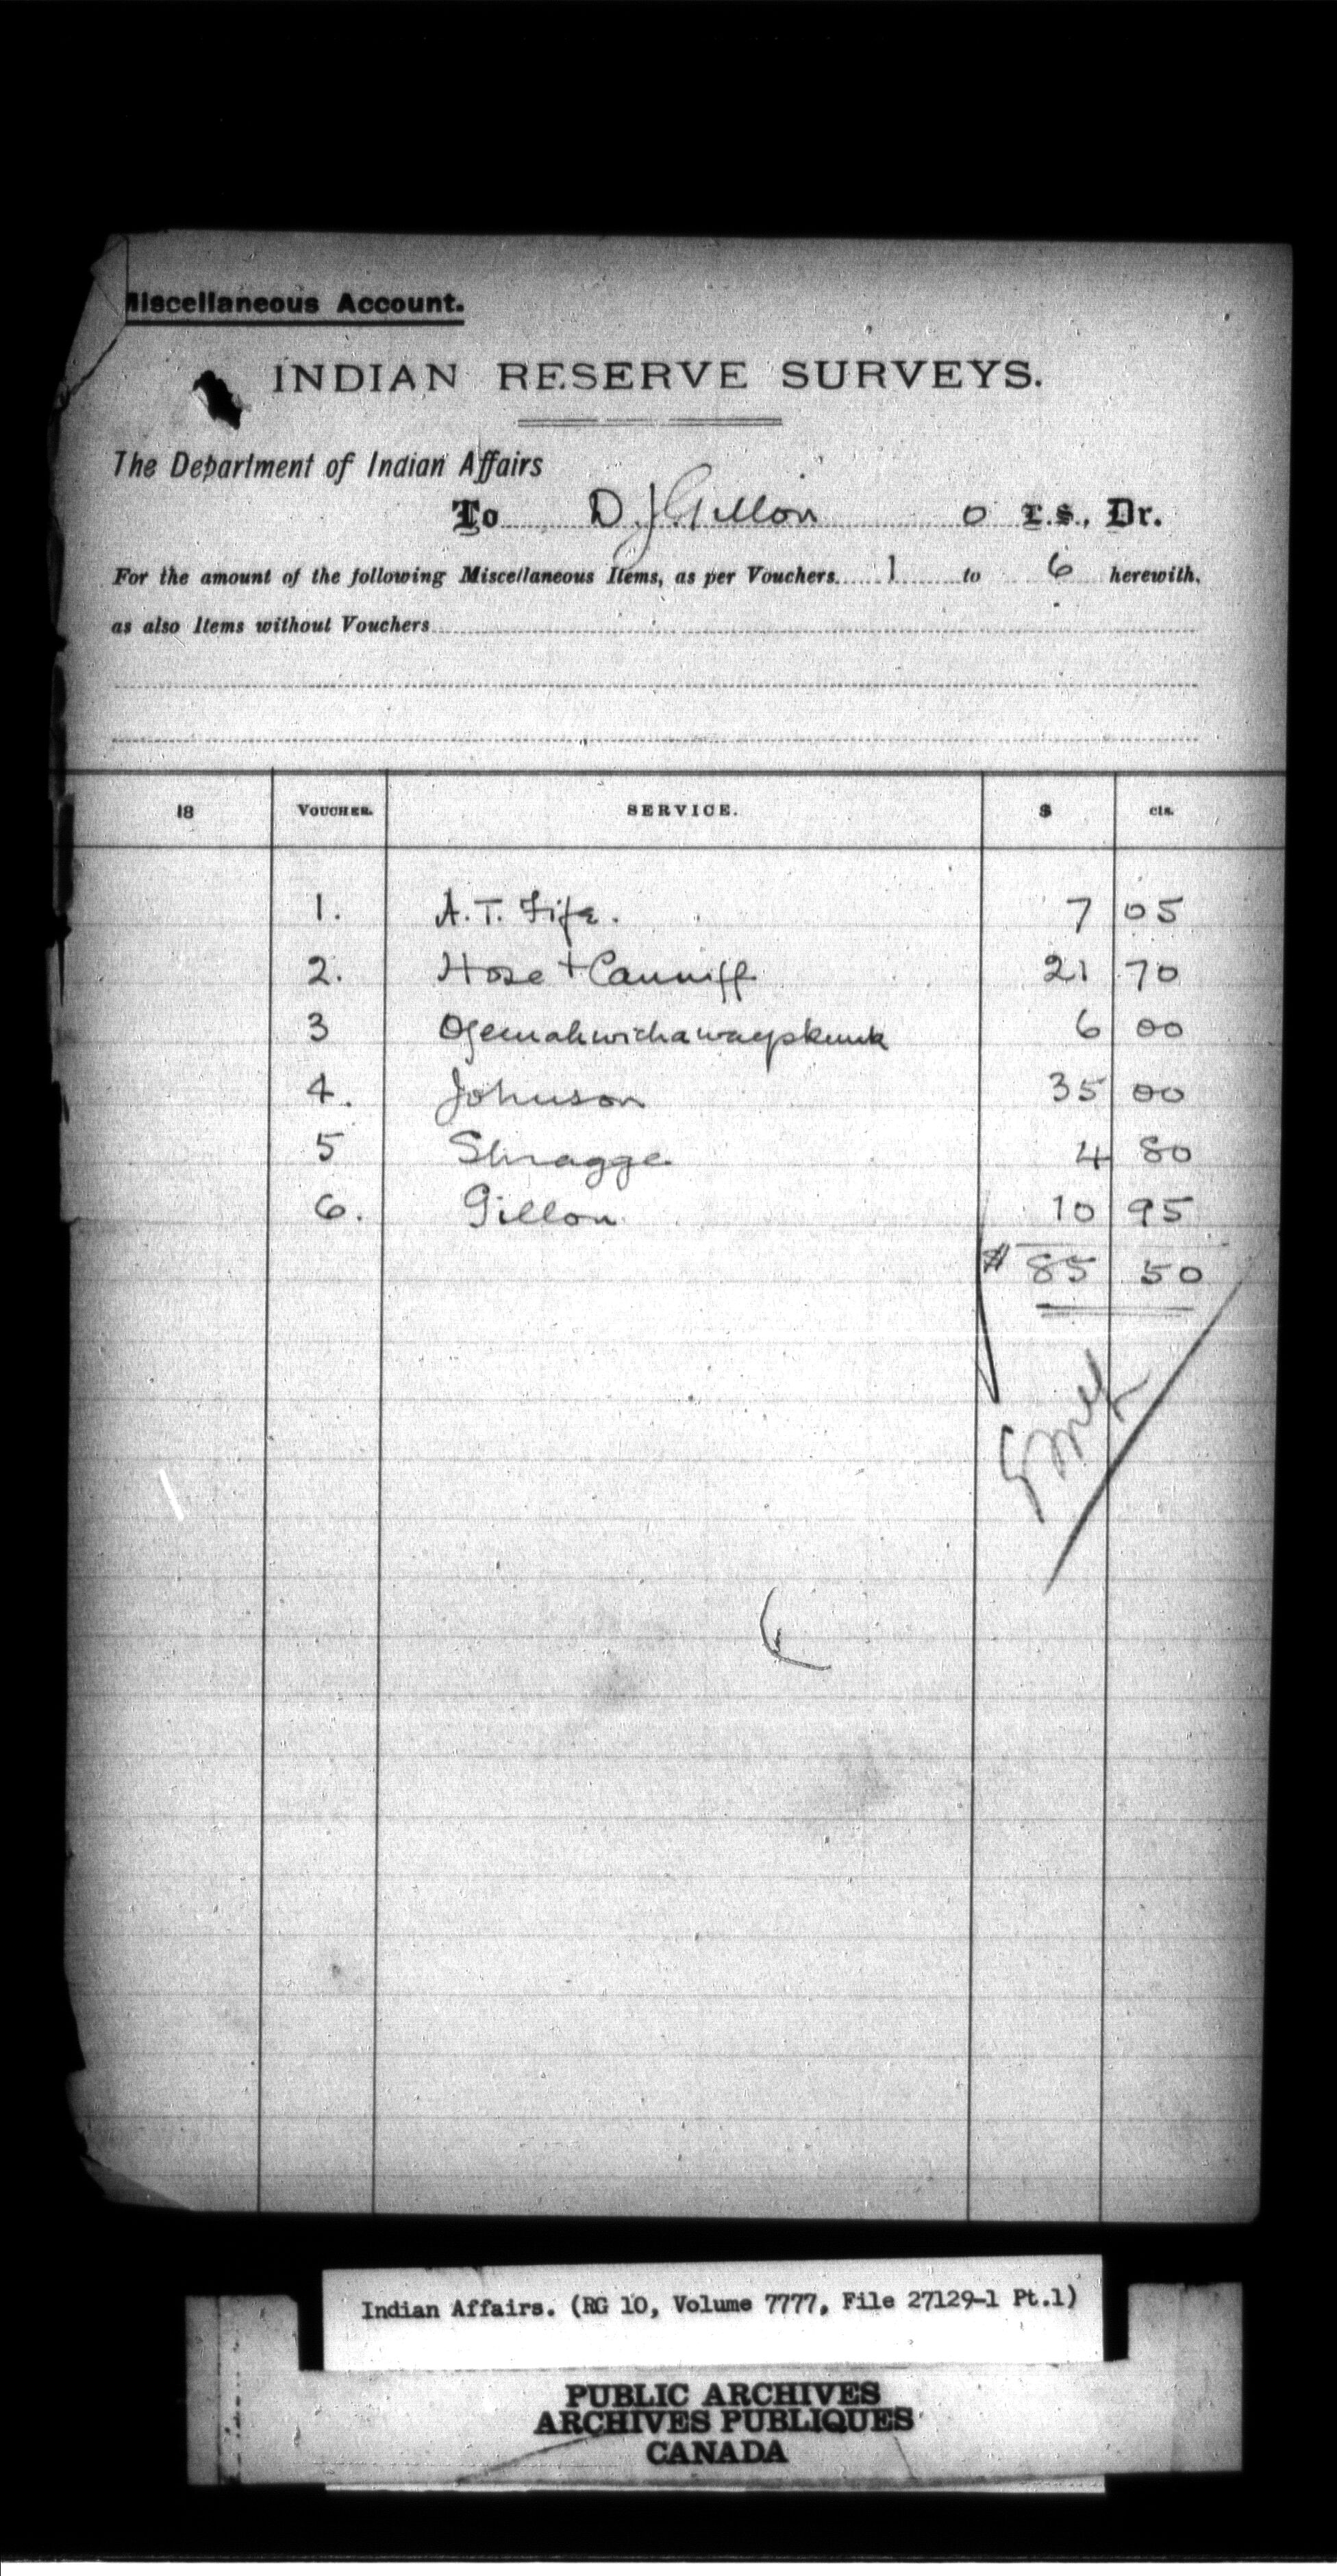 Miscellaneous Account.
INDIAN RESERVE SURVEYS.
The Department of Indian Affairs
To D. J. Gillon O L.S., Dr.
For the amount of the following Miscellaneous Items, as per Vouchers 1 to 6 herewith.
as also Items without Vouchers
18 VOUCHER. SERVICE. $ cts.
1. A. T. Fife. 7 05
2. Hose + Canniff 21 70
3 6 00
4. Johnson 35 00
5 Shragge 4 80
6. Gillon 10 95
$ 85 50
Indian Affairs. (RG 10, Volume 7777, File 27129-1 Pt.1)
PUBLIC ARCHIVES
ARCHIVES PUBLIQUES
CANADA